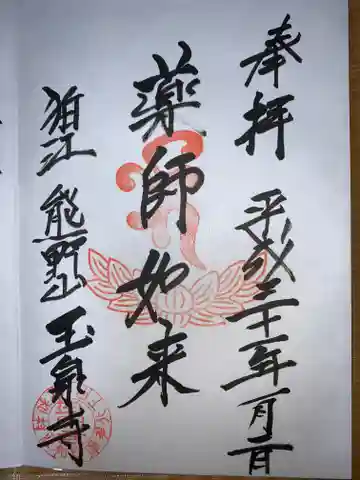 奉拝
平成三十一年一月二日
薬師如来
狛江 熊野山 玉泉寺